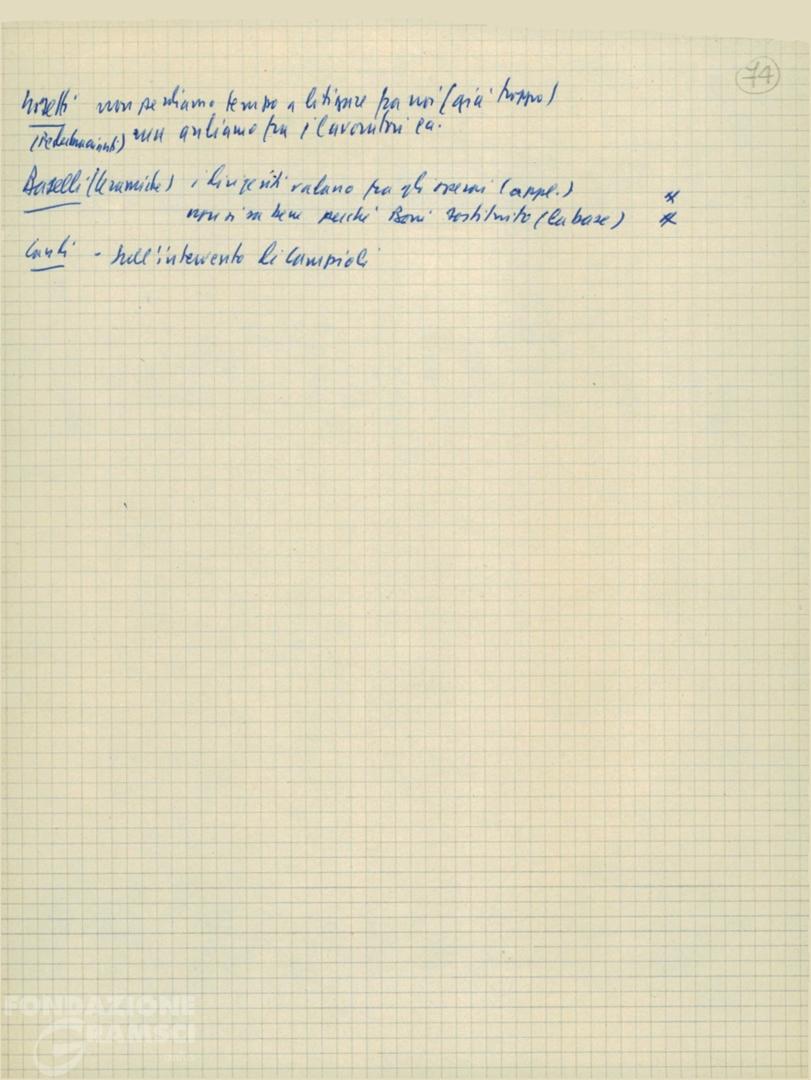 74
non perdiamo tempo a litigare fra noi (già troppo)
ma andiamo fra i lavoratori
Baselli (Ceramiche) i dirigenti vadano fra gli operai (appl.) *
non si sa bene perché Boni sostituito (la base) *
Conti - sull'intervento di Campioli
FONDAZIONE
GRAMSCI